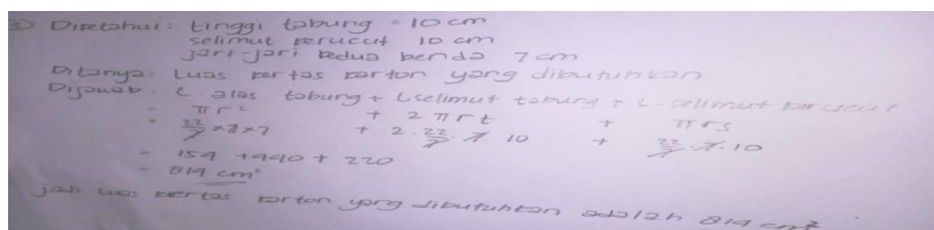 5) Diketahui : tinggi tabung = 10 cm
selimut kerucut 10 cm
jari-jari kedua benda 7 cm
Ditanya : Luas kertas karton yang dibutuhkan
Dijawab . L. alas tabung + L selimut tabung + L. selimut kerucut
= πr² + 2 πrt + πrs
= 22/7 × 7 × 7 + 2 . 22/7 . 7 . 10 + 22/7 . 7 . 10
= 154 + 440 + 220
= 814 cm²
jadi luas kertas karton yang dibutuhkan adalah 814 cm²